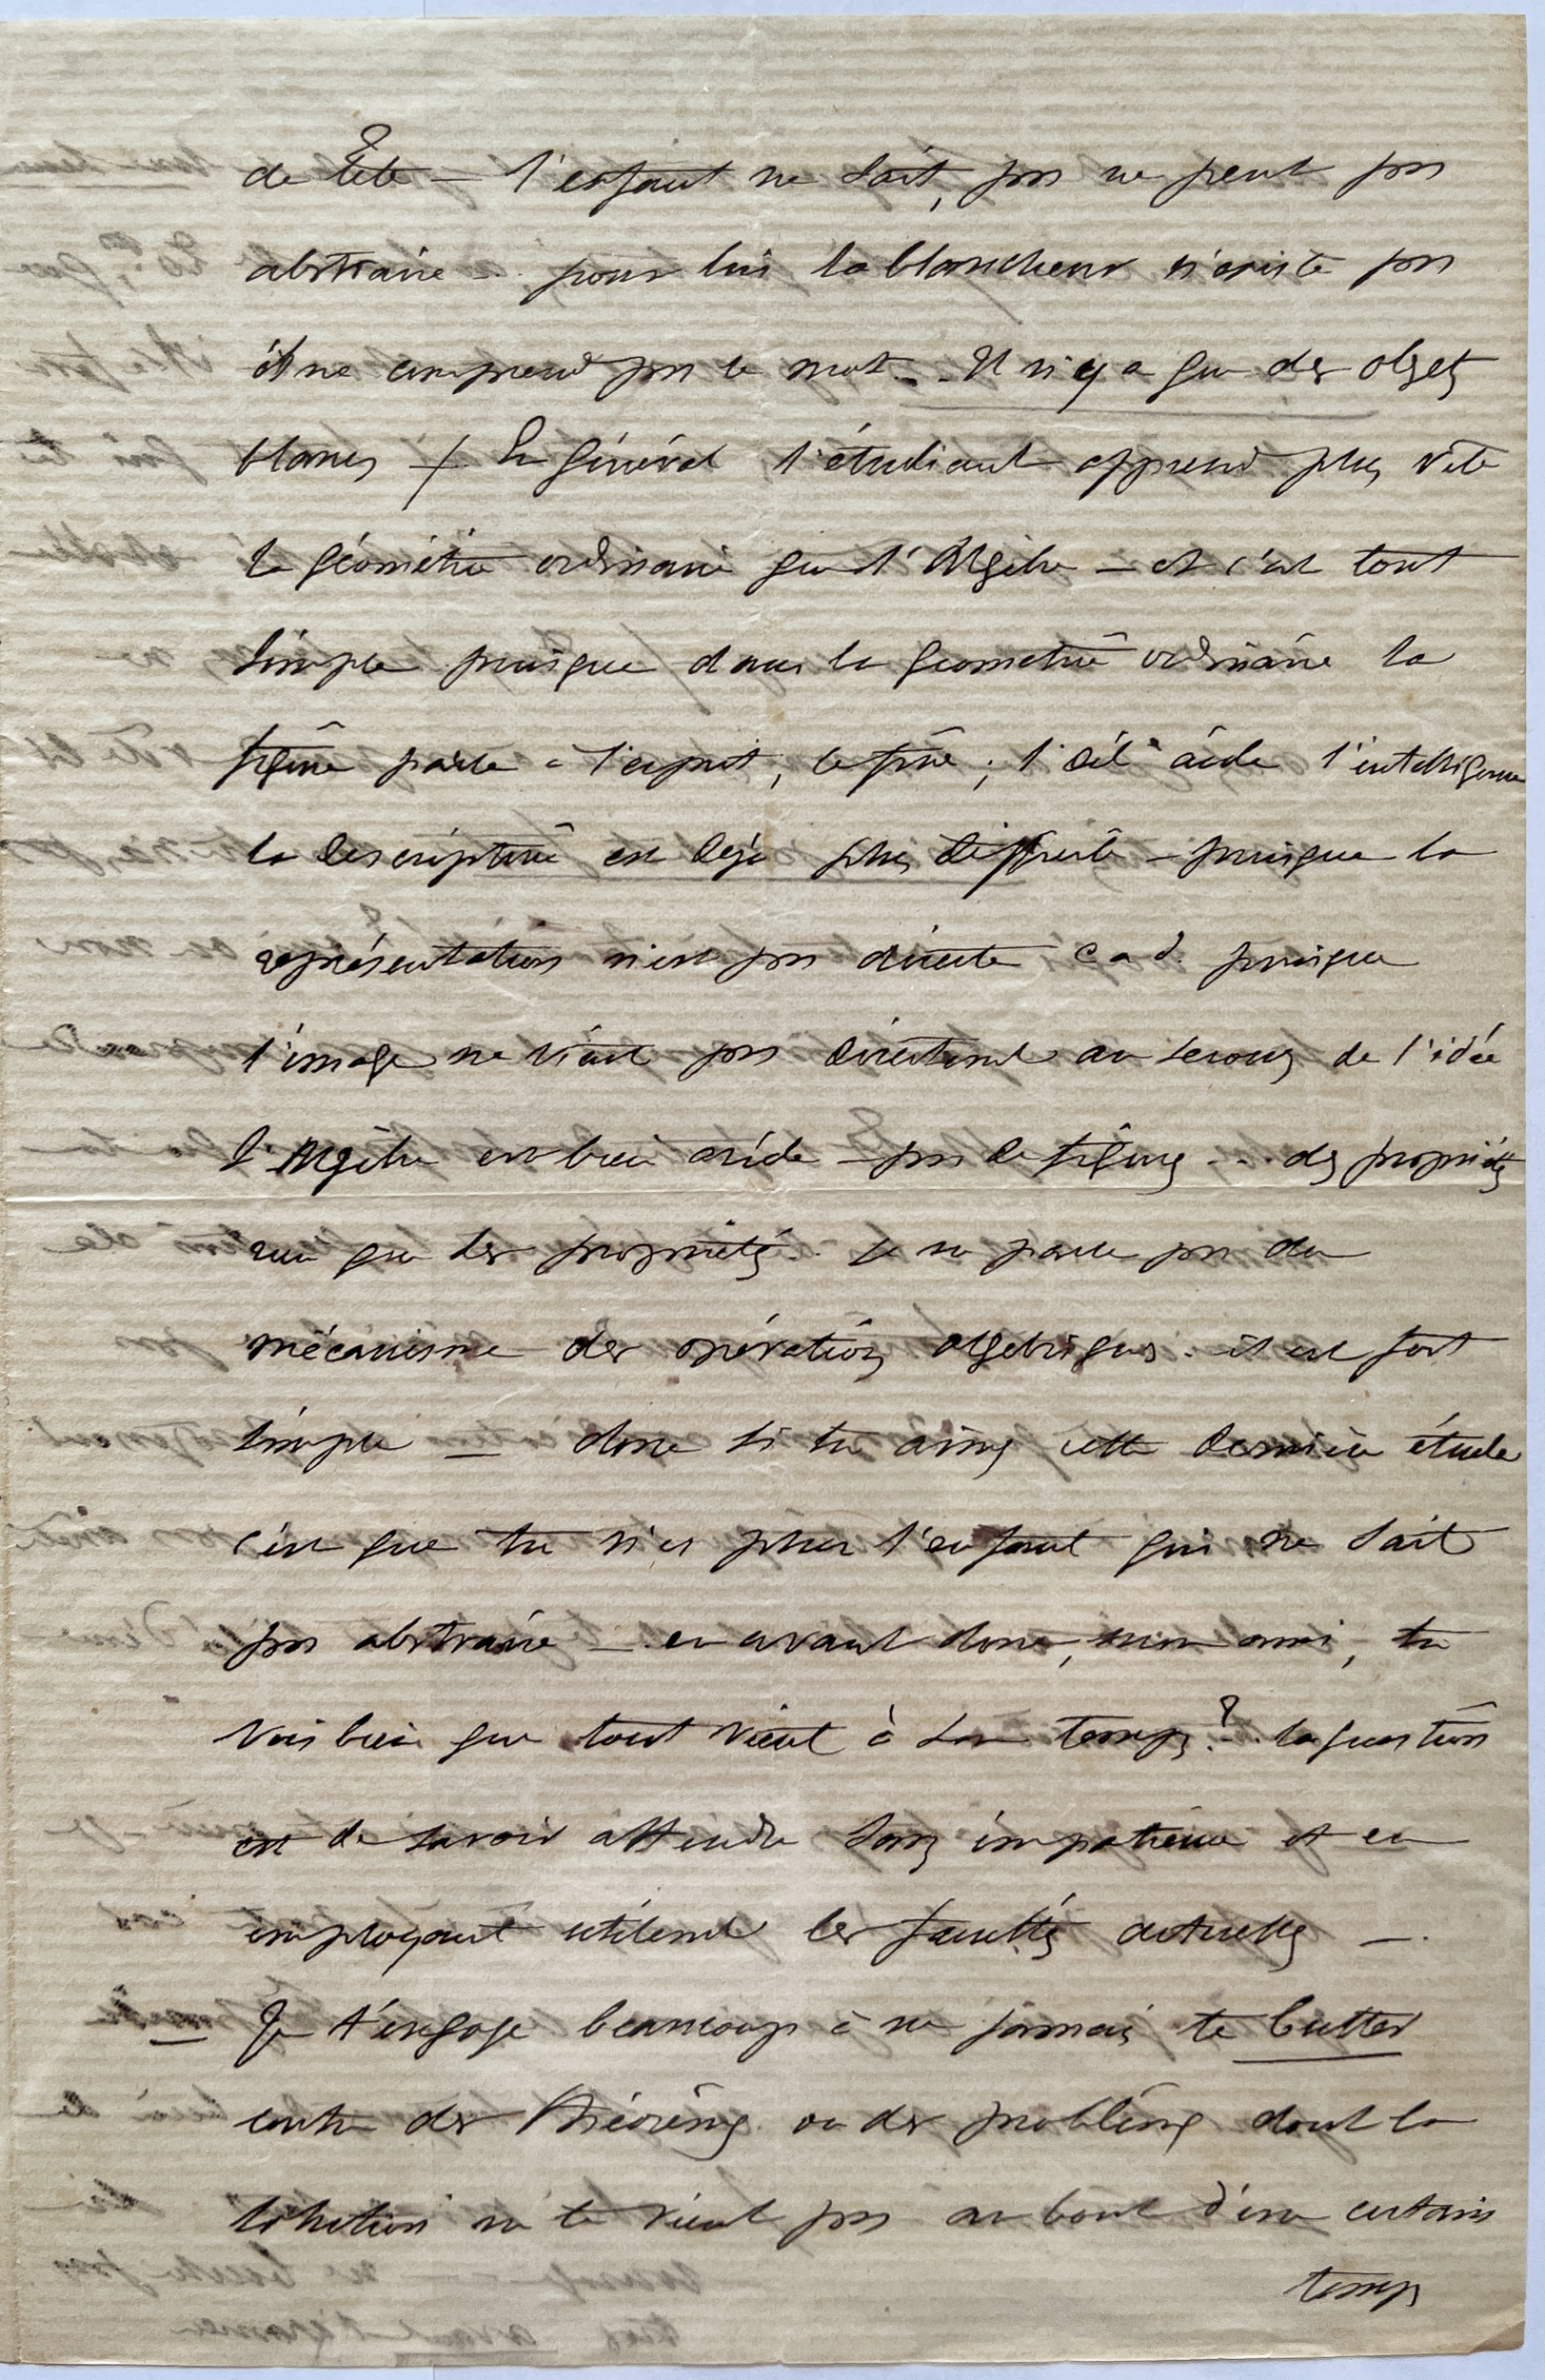 de tête — l'enfant ne sait, pas ne peut pas
abstraire .. pour lui la blancheur n'existe pas
il ne comprend pas le mot... Il n'y a que des objets
blancs + En général l'étudiant apprend plus vite
la géométrie ordinaire que l'Algèbre — et c'est tout
simple puisque dans la geometrie ordinaire la
figure parle à l'esprit, le fixe ; l'œil aide l'intelligence
la descriptive est deja plus difficile — puisque la
représentation n'est pas directe c a d. puisque
l'image ne vient pas directement au secours de l'idée
l'Algèbre est bien aride — pas de figures ... des propriétés
rien que des propriétés. Je ne parle pas du
mécanisme des opérations algebriques. il est fort
simple — donc si tu aimes cette dernière étude
c'est que tu n'es plus l'enfant qui ne sait
pas abstraire — en avant donc, mon ami, tu
vois bien que tout vient à son temps ? .. la question
est de savoir attendre sans impatience et en
employant utilement les facultés actuelles —.
— Je t'engage beaucoup à ne jamais te butter
contre des théorèmes ou des problèmes dont la
solution ne te vient pas au bout d'un certain
temps